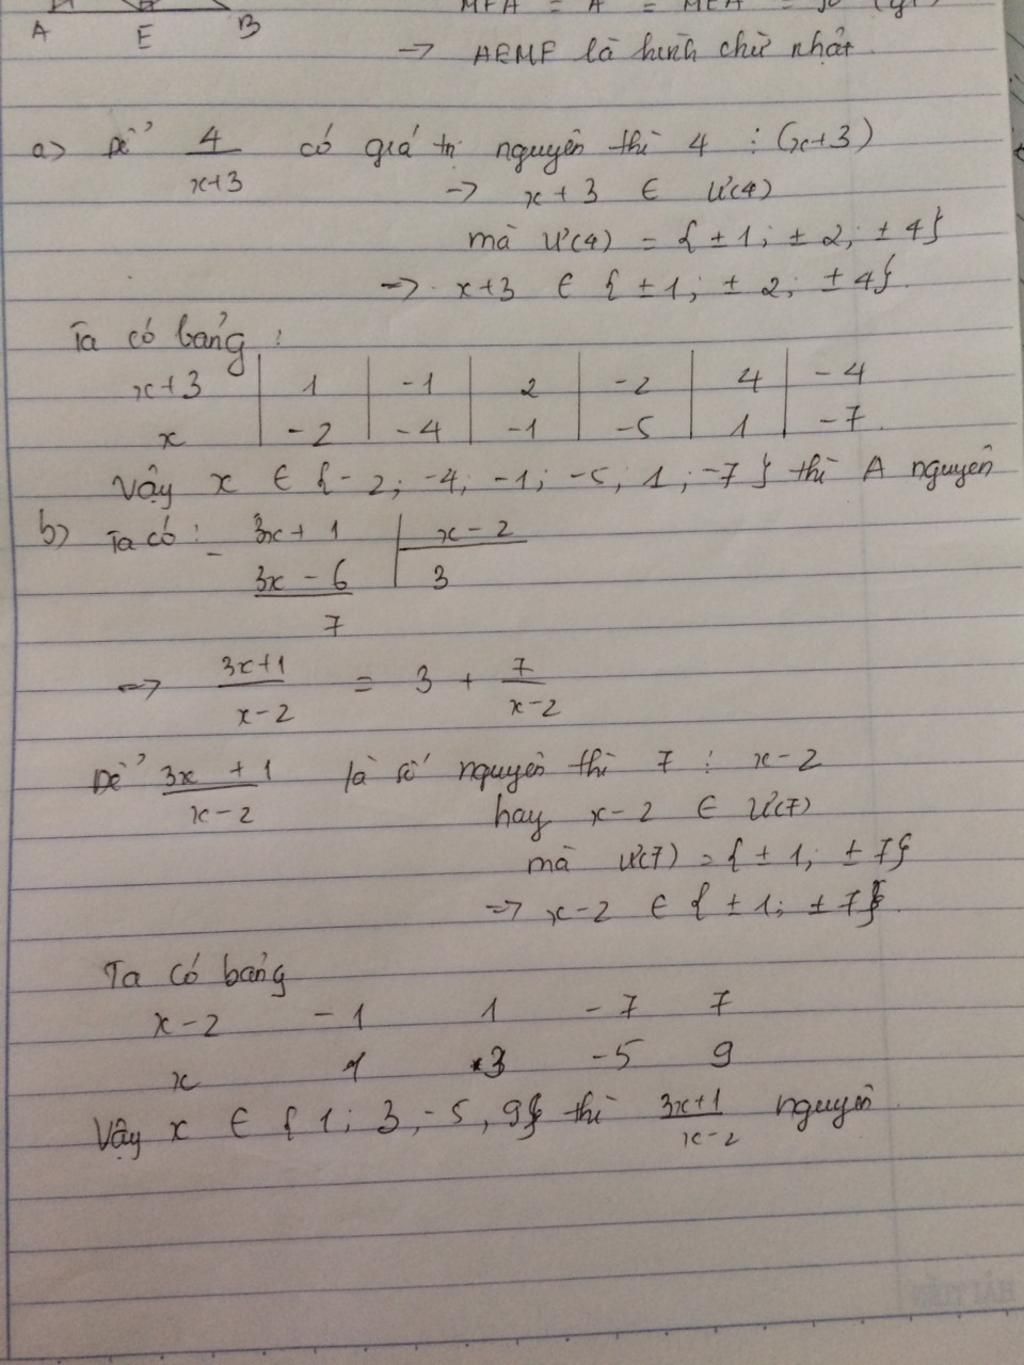 MFA = A = MEA = 90
A E B
→ AEMF là hình chữ nhật.
a> Để 4/(x+3) có giá trị nguyên thì 4 ⋮ (x+3)
→ x+3 ∈ Ư(4)
mà Ư(4) = {±1; ±2; ±4}
=> x+3 ∈ {±1; ±2; ±4}.
Ta có bảng :
x+3 | 1 | -1 | 2 | -2 | 4 | -4
x | -2 | -4 | -1 | -5 | 1 | -7.
Vậy x ∈ {-2; -4; -1; -5; 1; -7} thì A nguyên
b> Ta có : 3x+1 | x-2
- 3x-6 | 3
7
=> (3x+1)/(x-2) = 3 + 7/(x-2)
Để (3x+1)/(x-2) là số nguyên thì 7 ⋮ x-2
hay x-2 ∈ Ư(7)
mà Ư(7) = {±1; ±7}
=> x-2 ∈ {±1; ±7}.
Ta có bảng
x-2 -1 1 -7 7
x 1 3 -5 9
Vậy x ∈ {1; 3, -5, 9} thì (3x+1)/(x-2) nguyên